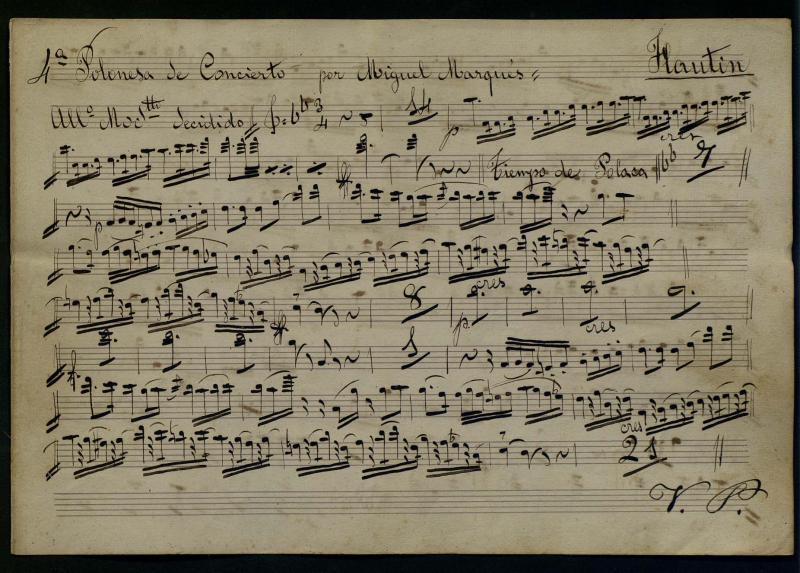 4ª Polonesa de Concierto por Miguel Marqués = Flautin
All.º Mod.tto decidido 3/4 14 p
cres
ff Tiempo de Polaca 7
p
cres
ff 8 p
cres
ff 1
cres
21
V. P.